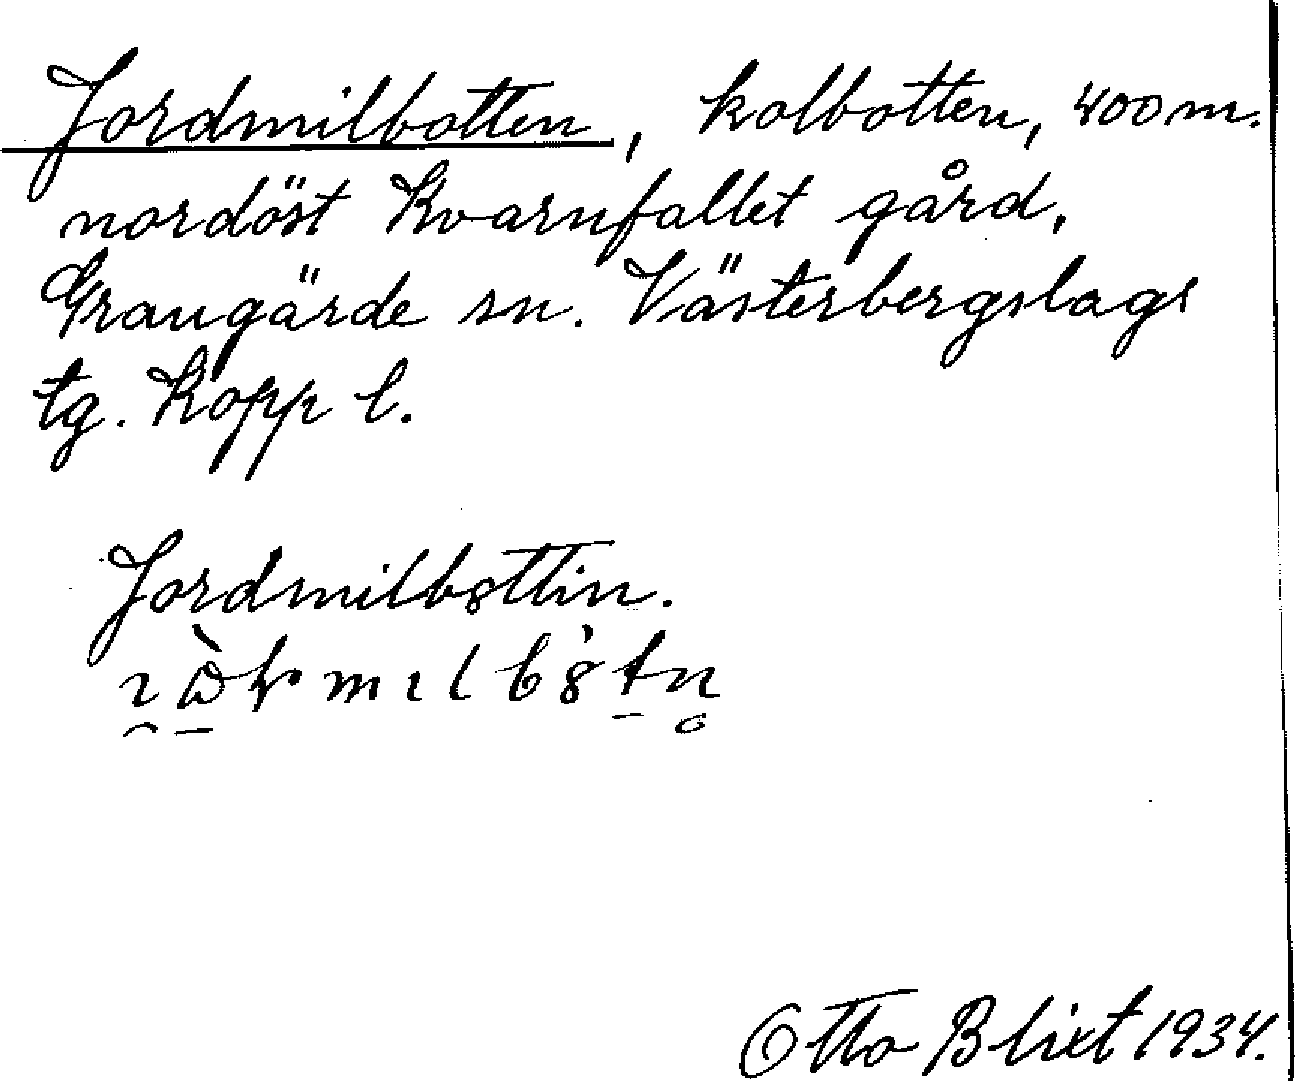 Jordmilbotten, kolbotten, 400 m.
nordöst Kvarnfallet gård,
Grangärde sn. Västerbergslags
tg. Kopp l.
Jordmilb8ttin.
Otto Blixt 1934.